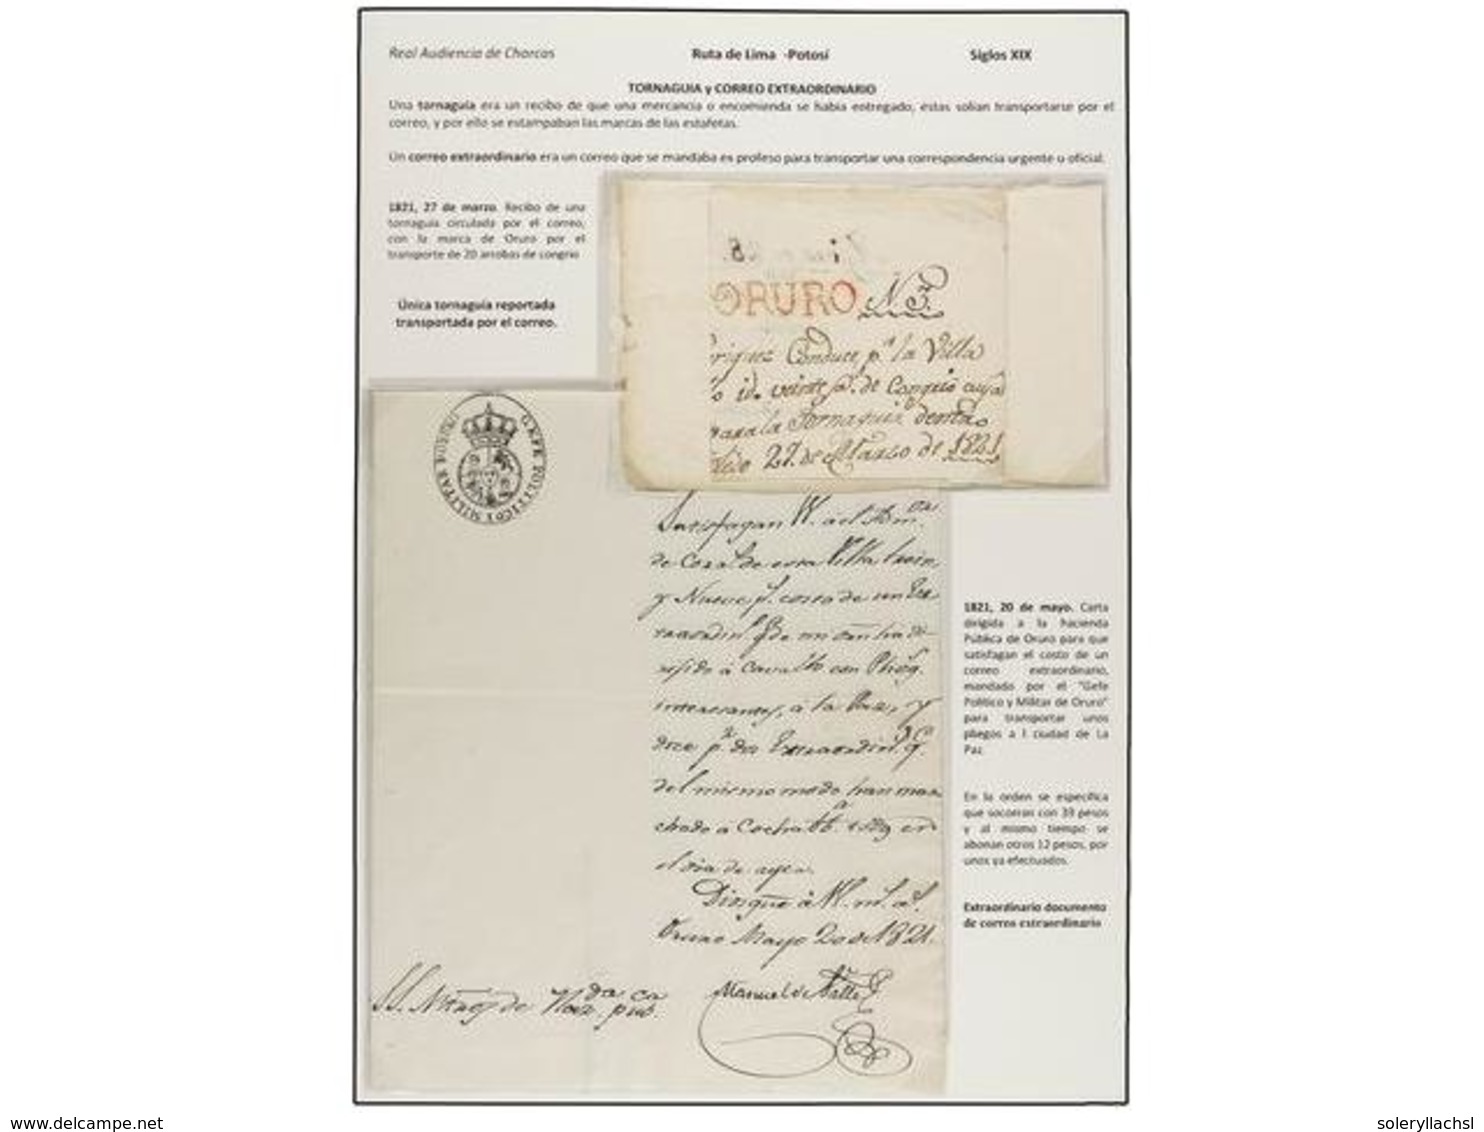 Real Audiencia de Charcas
Ruta de Lima -Potosí
Siglos XIX
TORNAGUIA y CORREO EXTRAORDINARIO
Una tornaguía era un recibo de que una mercancía o encomienda se había entregado, éstas solían transportarse por el
correo, y por ello se estampaban las marcas de las estafetas.
Un correo extraordinario era un correo que se mandaba es profeso para transportar una correspondencia urgente u oficial.
1821, 27 de marzo. Recibo de una
tornaguía circulada por el correo,
con la marca de Oruro por el
transporte de 20 arrobas de congrio
Única tornaguía reportada
transportada por el correo.
ORURO N 3.
riquez Conduce pª la Villa
o id. veinte @s. de Congrio cuya
la Tornaguia
27. de Marzo de 1821.
GEFE POLITICO Y MILITAR DE ORURO
Satisfagan V. al Adm.or
de Corr.s de esta Villa trein
y Nueve p.s costo de un Ex
traordin.o q.e
a Cavallo con Plieg.s
interesantes, á la Paz, y
doce p.r dos Extraordin.s q.e
del mismo modo han mar
chado á Cochabb.a en
el dia de ayer.
Dios gue á V. m.s a.s
Oruro Mayo 20 de 1821.
Manuel de Valle
S.S. Mtros de Haz.da pub.ca
1821, 20 de mayo. Carta
dirigida a la hacienda
Pública de Oruro para que
satisfagan el costo de un
correo extraordinario,
mandado por el "Gefe
Político y Militar de Oruro"
para transportar unos
pliegos a l ciudad de La
Paz
En la orden se especifica
que socorran con 39 pesos
y al mismo tiempo se
abonan otros 12 pesos, por
unos ya efectuados.
Extraordinario documento
de correo extraordinario
www.delcampe.net
soleryllachsl